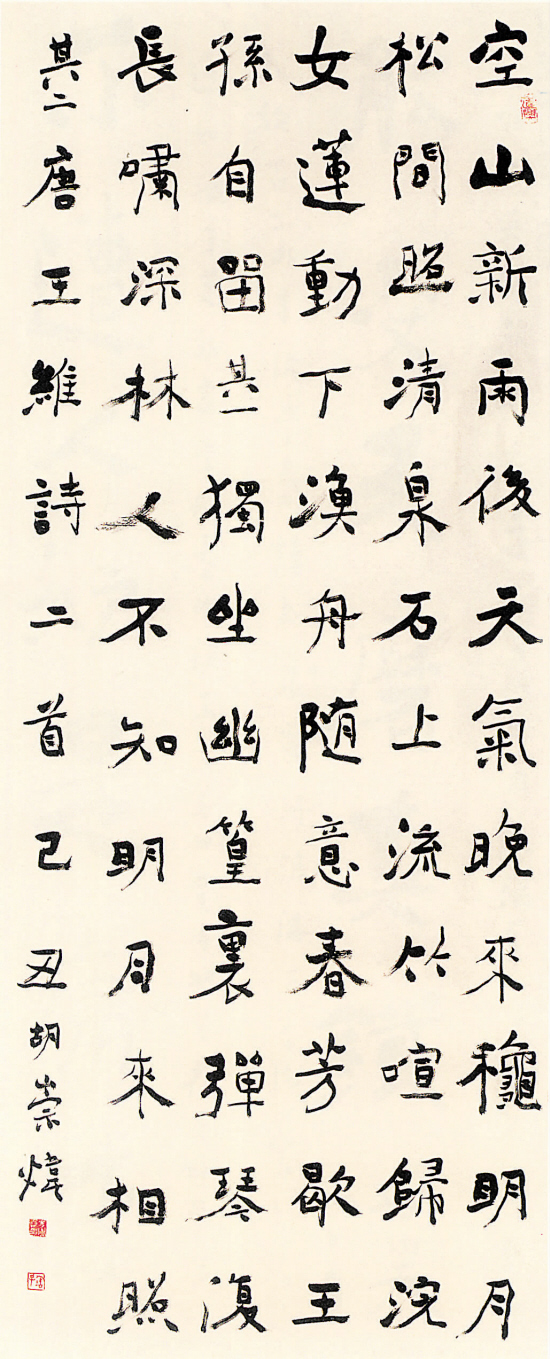 空山新雨後天氣晚來龝明月
松間照清泉石上流竹喧歸浣
女蓮動下漁舟随意春芳歇王
孫自留其一獨坐幽篁裏彈琴復
長嘯深林人不知明月來相照
其二唐王維詩二首己丑胡崇煒